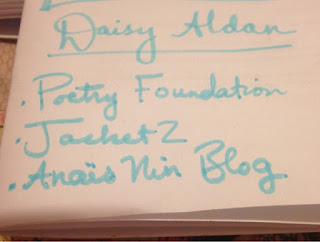 Daisy Aldan
• Poetry Foundation
• Jacket2
• Anaïs Nin Blog